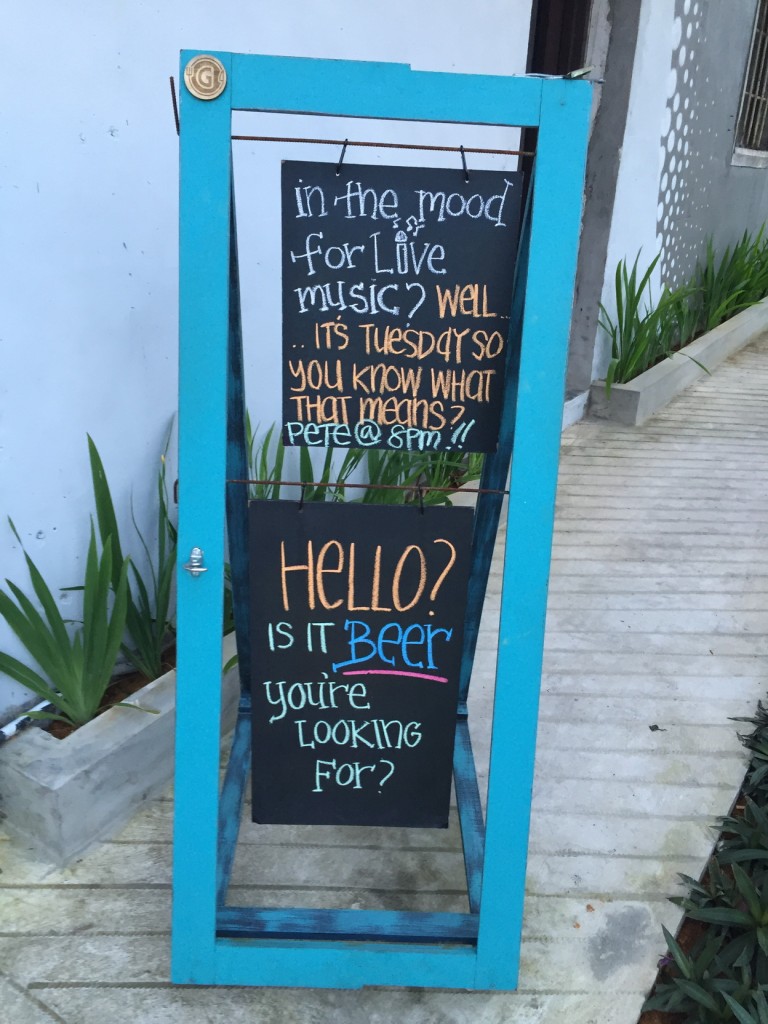 G
in the mood
for Live
music? WELL..
.. IT'S TUE'SDAY SO
YOU KNOW WHAT
THAT MEANS?
PETE @ 8PM!!
HELLO?
IS IT BEER
YOU'RE
LOOKING
FOR?